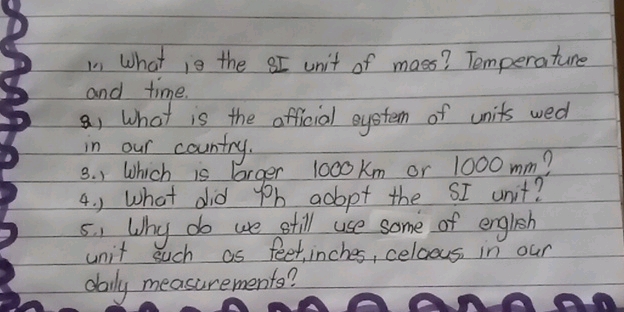 1.) What is the SI unit of mass? Temperature
and time.
2.) What is the official system of units wed
in our country.
3.) Which is larger 1000 Km or 1000 mm?
4.) What did Ph adopt the SI unit?
5.) Why do we still use some of english
unit such as feet, inches, celcous in our
daily measurements?